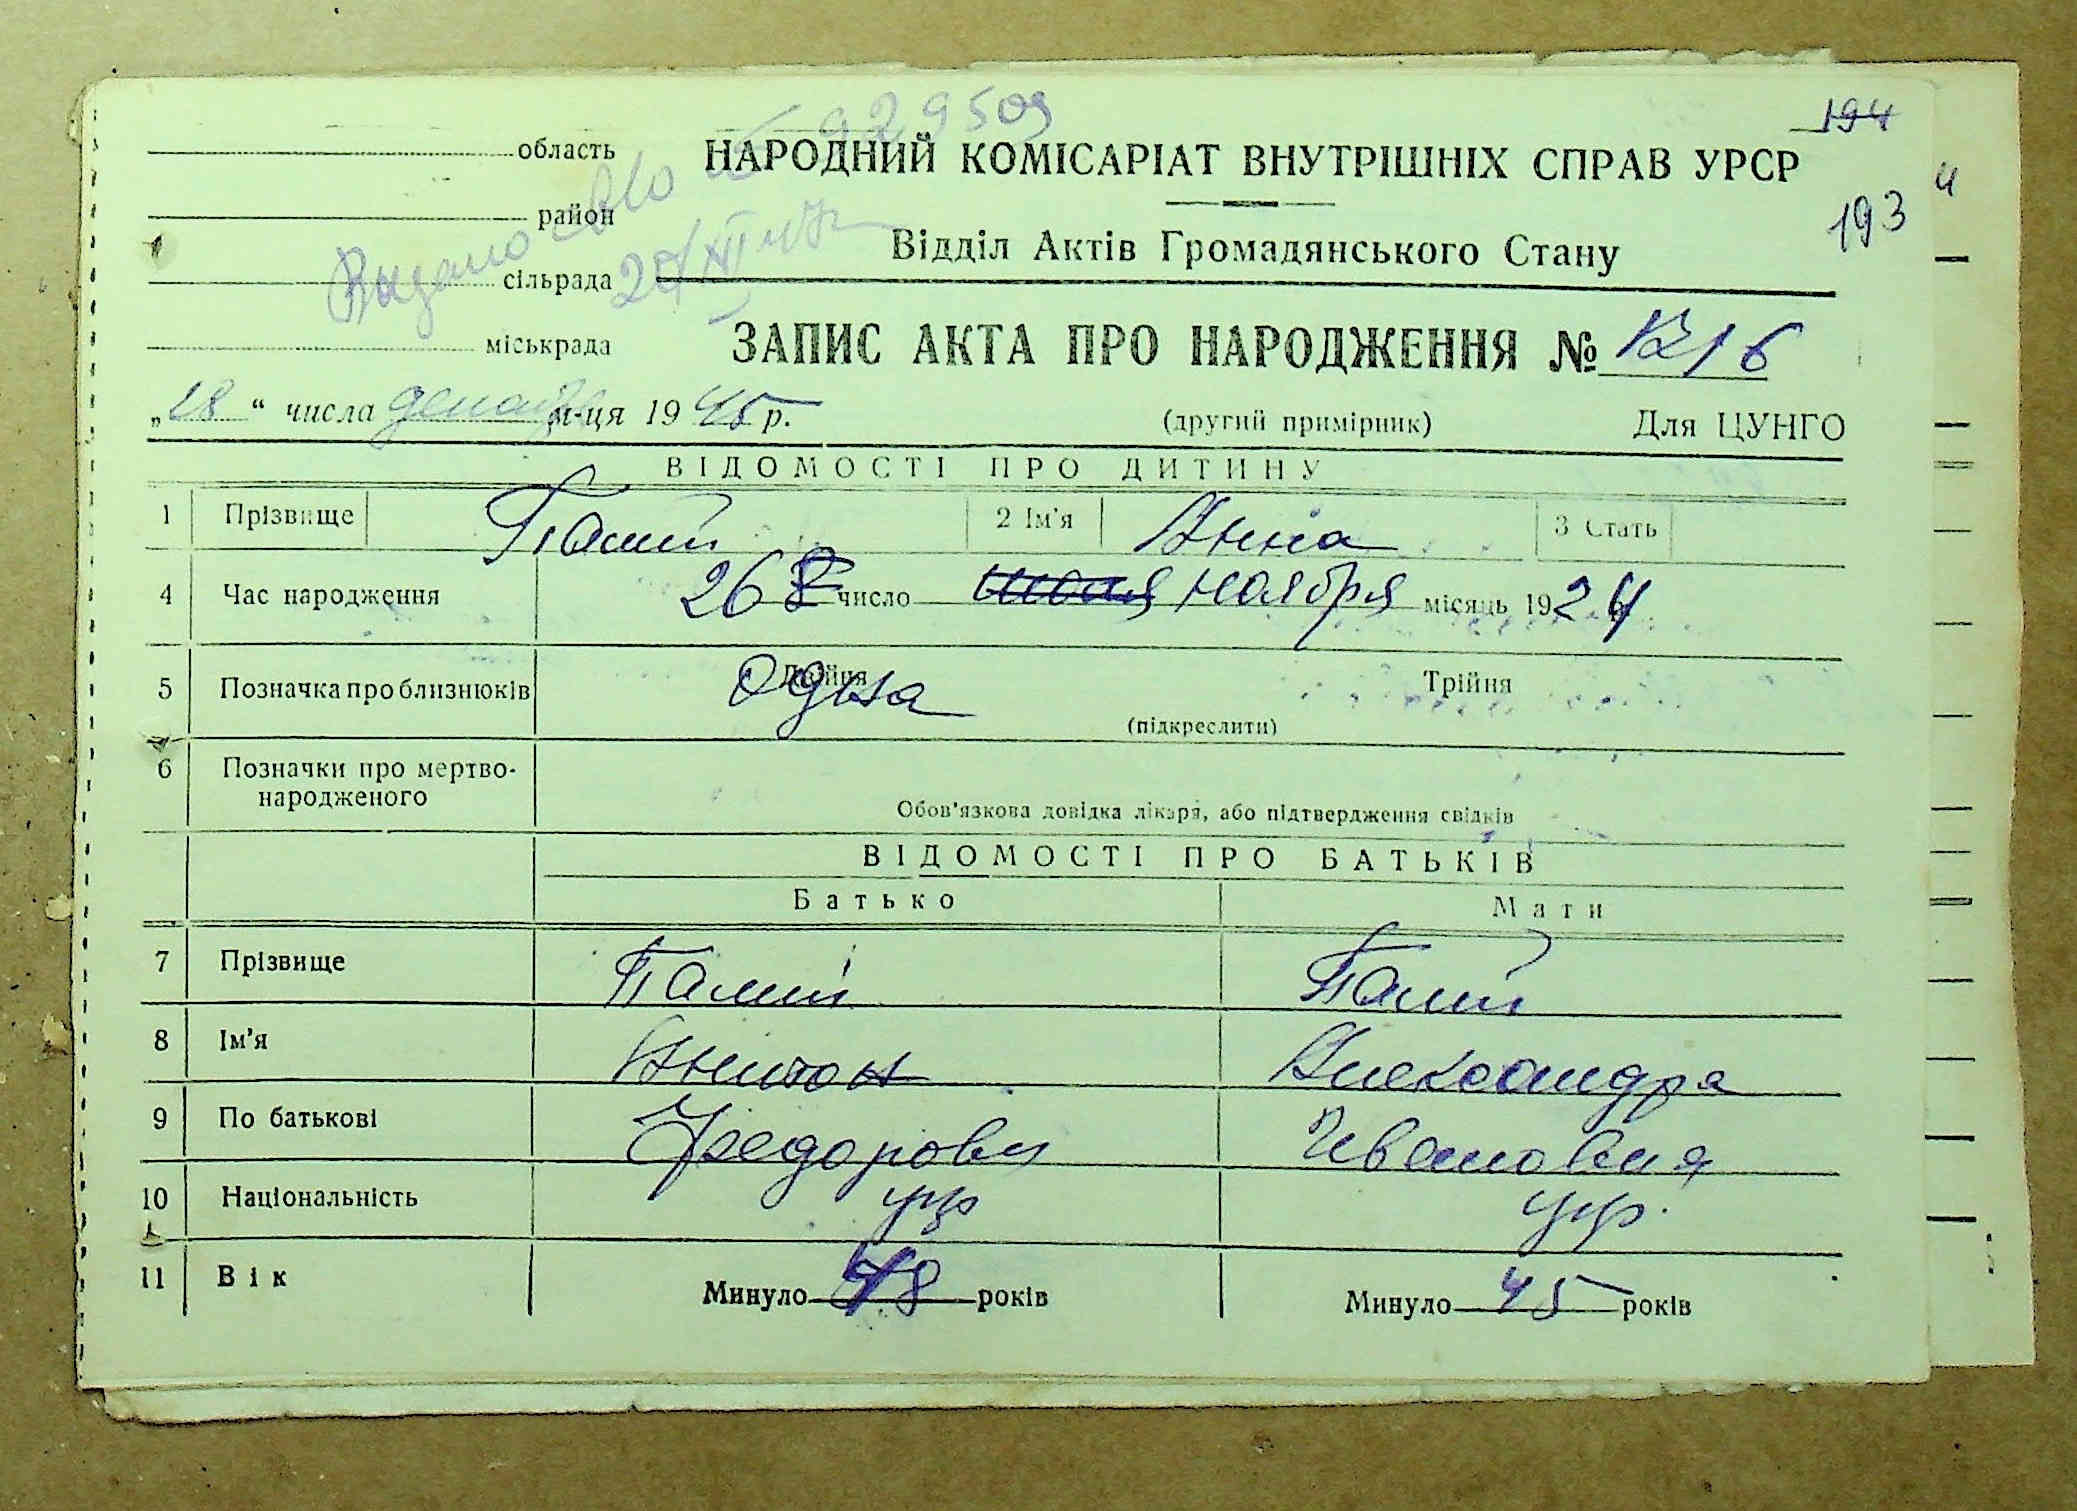 929509
194
область НАРОДНИЙ КОМІСАРІАТ ВНУТРІШНІХ СПРАВ УРСР
193
район
Відділ Актів Громадянського Стану
Выдано
сільрада
міськрада ЗАПИС АКТА ПРО НАРОДЖЕННЯ № 1216
„28“ числа декабря м-ця 1945 р. (другий примірник) Для ЦУНГО
ВІДОМОСТІ ПРО ДИТИНУ
1 Прізвище Палий 2 Ім'я Анна 3 Стать
4 Час народження 26 число ноября місяць 1924
5 Позначка про близнюків Двійня одна Трійня
(підкреслити)
6 Позначки про мертво-
народженого
Обов'язкова довідка лікаря, або підтвердження свідків
ВІДОМОСТІ ПРО БАТЬКІВ
Батько Мати
7 Прізвище Палий Палий
8 Ім'я Антон Александра
9 По батькові Федорович Ивановна
10 Національність укр укр.
11 Вік Минуло 48 років Минуло 45 років